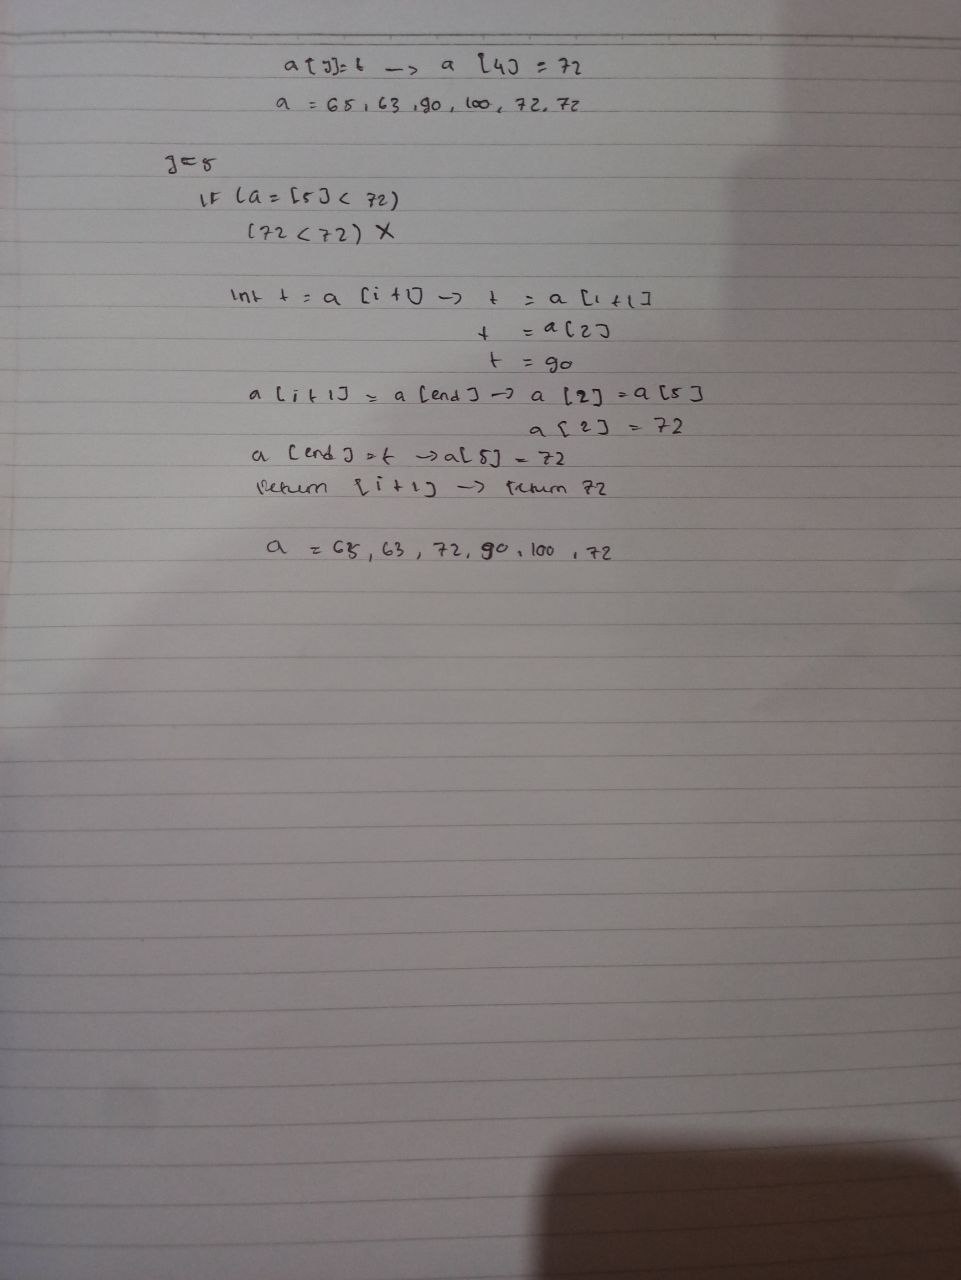 a[J]=t → a [4] = 72
a = 65, 63, 90, 100, 72, 72
J=5
if (a=[5]< 72)
(72 < 72) X
int t = a [i+1] → t = a [i+1]
t = a[2]
t = 90
a [i+1] = a [end] → a [2] = a [5]
a [2] = 72
a [end] = t → a[5] = 72
return [i+1] → return 72
a = 65, 63, 72, 90, 100, 72